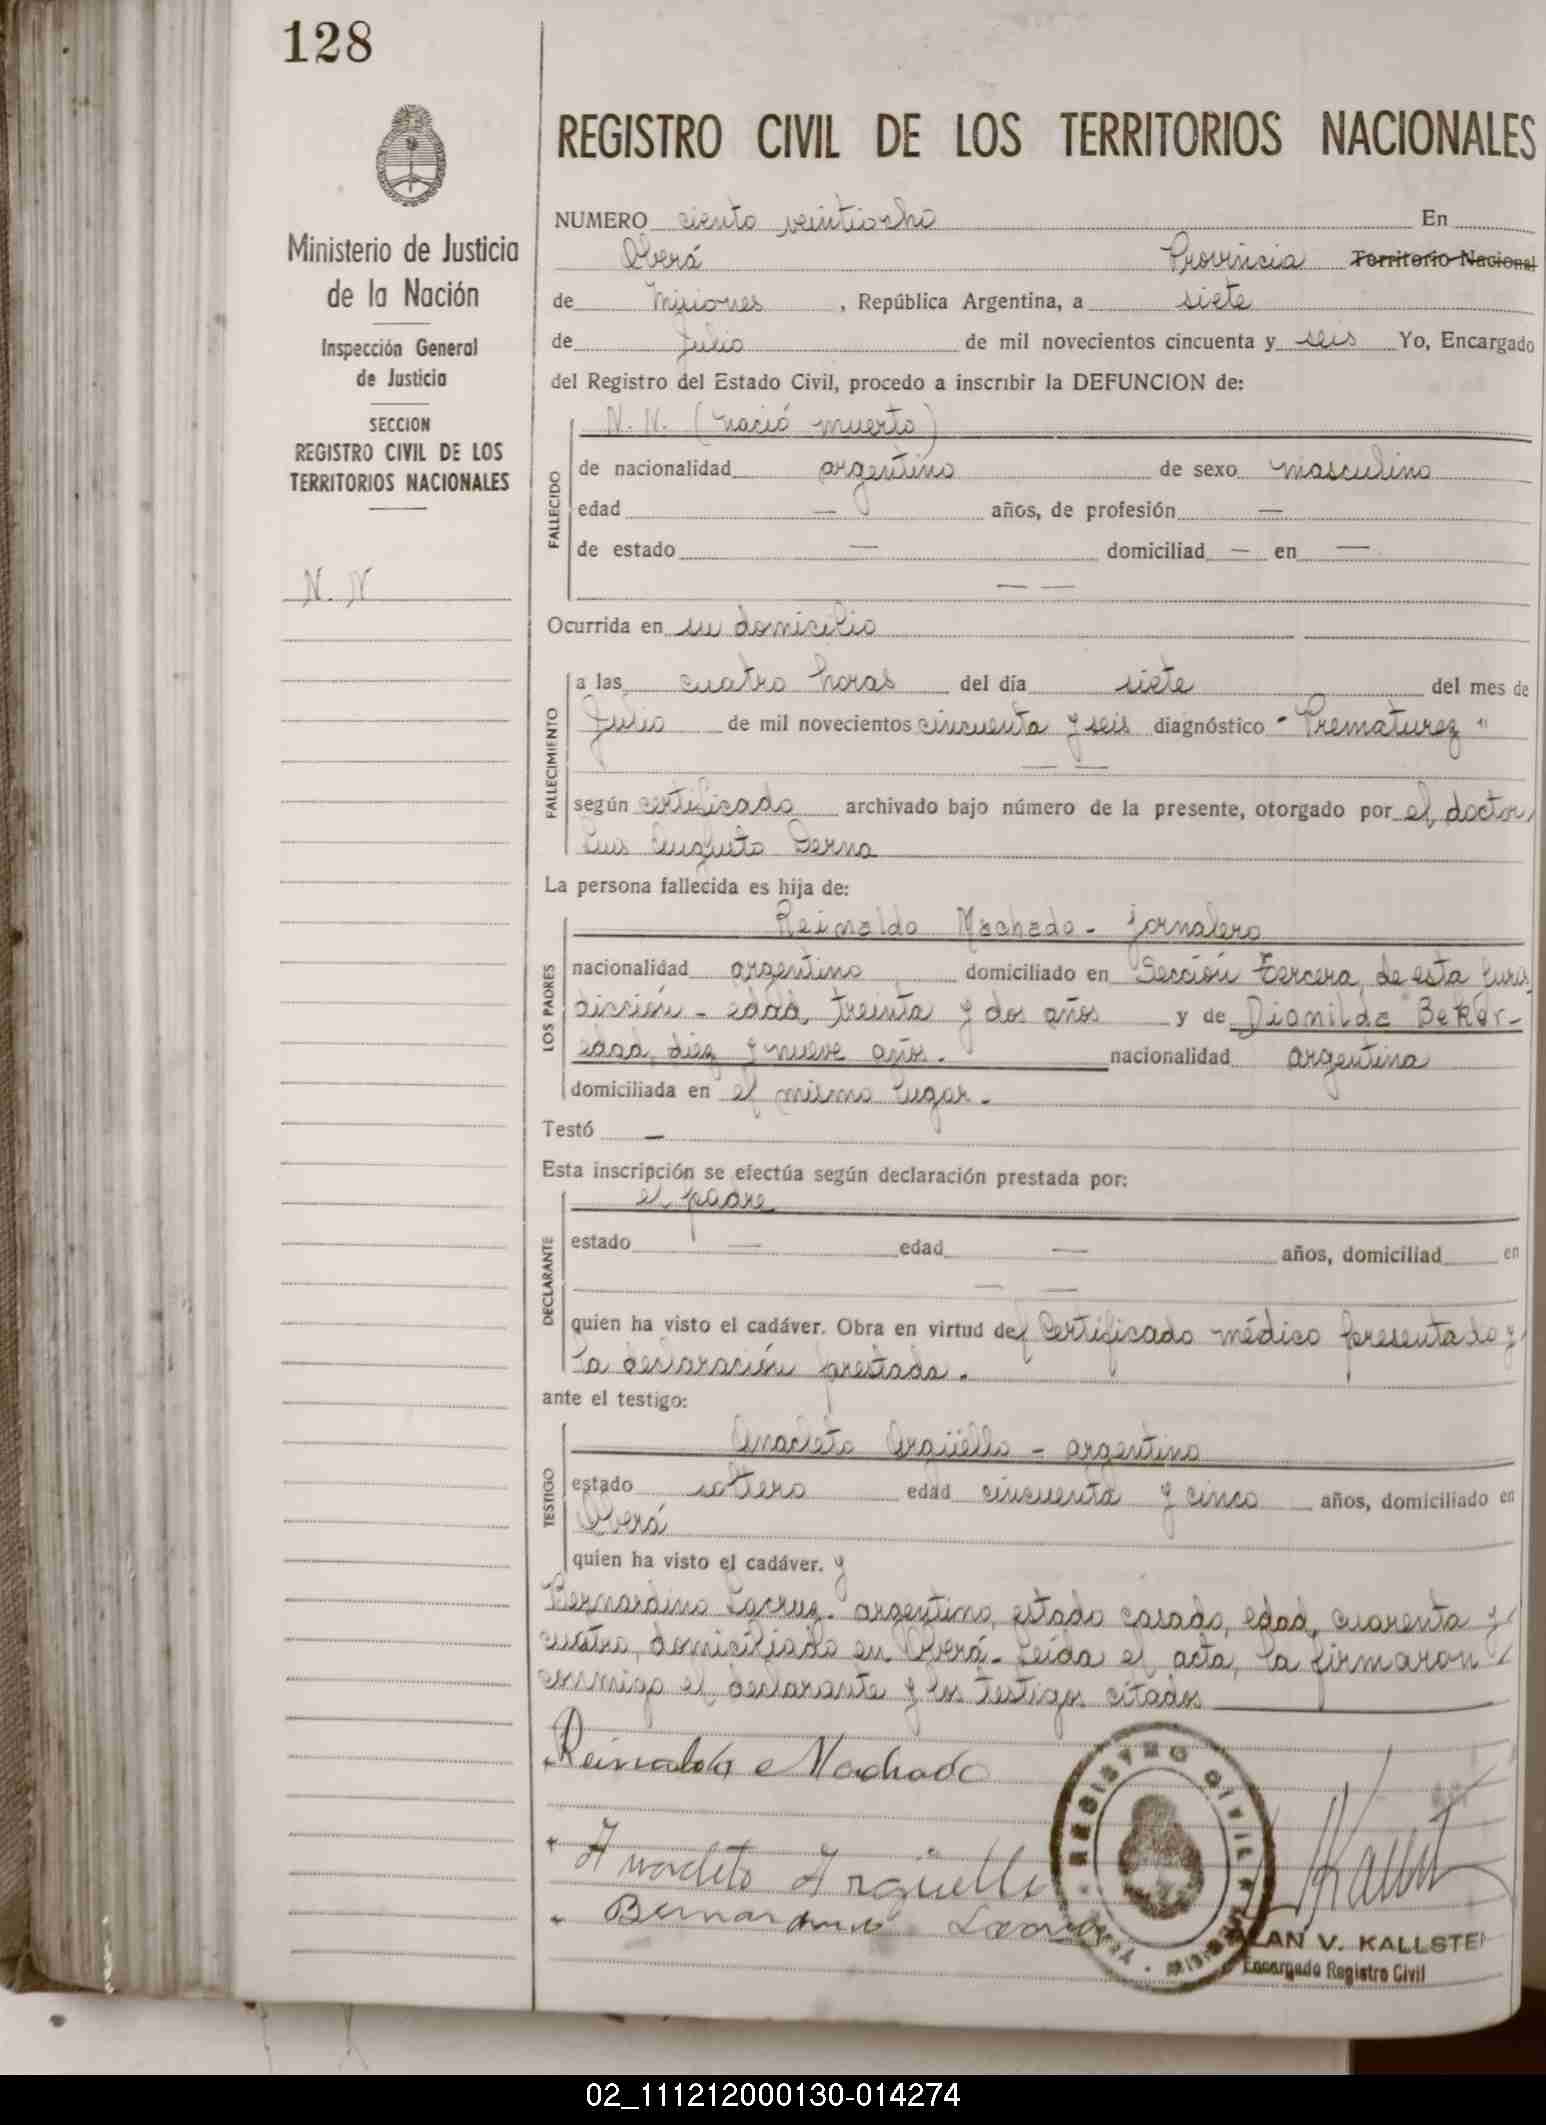 128
REGISTRO CIVIL DE LOS TERRITORIOS NACIONALES
Ministerio de Justicia
de la Nación
Inspección General
de Justicia
SECCION
REGISTRO CIVIL DE LOS
TERRITORIOS NACIONALES
N. N
NUMERO ciento veintiocho En
Oberá Provincia Territorio Nacional
de Misiones, República Argentina, a siete
de Julio de mil novecientos cincuenta y seis Yo, Encargado
del Registro del Estado Civil, procedo a inscribir la DEFUNCION de:
FALLECIDO
N. N. (nació muerto)
de nacionalidad argentino de sexo masculino
edad — años, de profesión —
de estado — domiciliad — en —
— —
Ocurrida en su domicilio
FALLECIMIENTO
a las cuatro horas del día siete del mes de
Julio de mil novecientos cincuenta y seis diagnóstico "Prematurez"
— —
según certificado archivado bajo número de la presente, otorgado por el doctor
Luis Augusto Derna
La persona fallecida es hija de:
LOS PADRES
Reinaldo Machado - jornalero
nacionalidad argentino domiciliado en Sección tercera, de esta Juris
dicción - edad, treinta y dos años y de Dionilda Beker-
edad, diez y nueve años. nacionalidad argentina
domiciliada en el mismo lugar.
Testó —
Esta inscripción se efectúa según declaración prestada por:
DECLARANTE
el padre
estado — edad — años, domiciliad en
— —
quien ha visto el cadáver. Obra en virtud del Certificado médico presentado y
la declaración prestada.
ante el testigo:
TESTIGO
Anacleto Argüello - argentino
estado soltero edad cincuenta y cinco años, domiciliado en
Oberá
quien ha visto el cadáver. y
Bernardino Lacruz - argentino, estado casado, edad, cuarenta y
cuatro, domiciliado en Oberá - Leída el acta, la firmaron
conmigo el declarante y los testigos citados
Reinaldo Machado
Anacleto Argüello
Bernardino
REGISTRO CIVIL
KALLSTE
Encargado Registro Civil
02_111212000130-014274